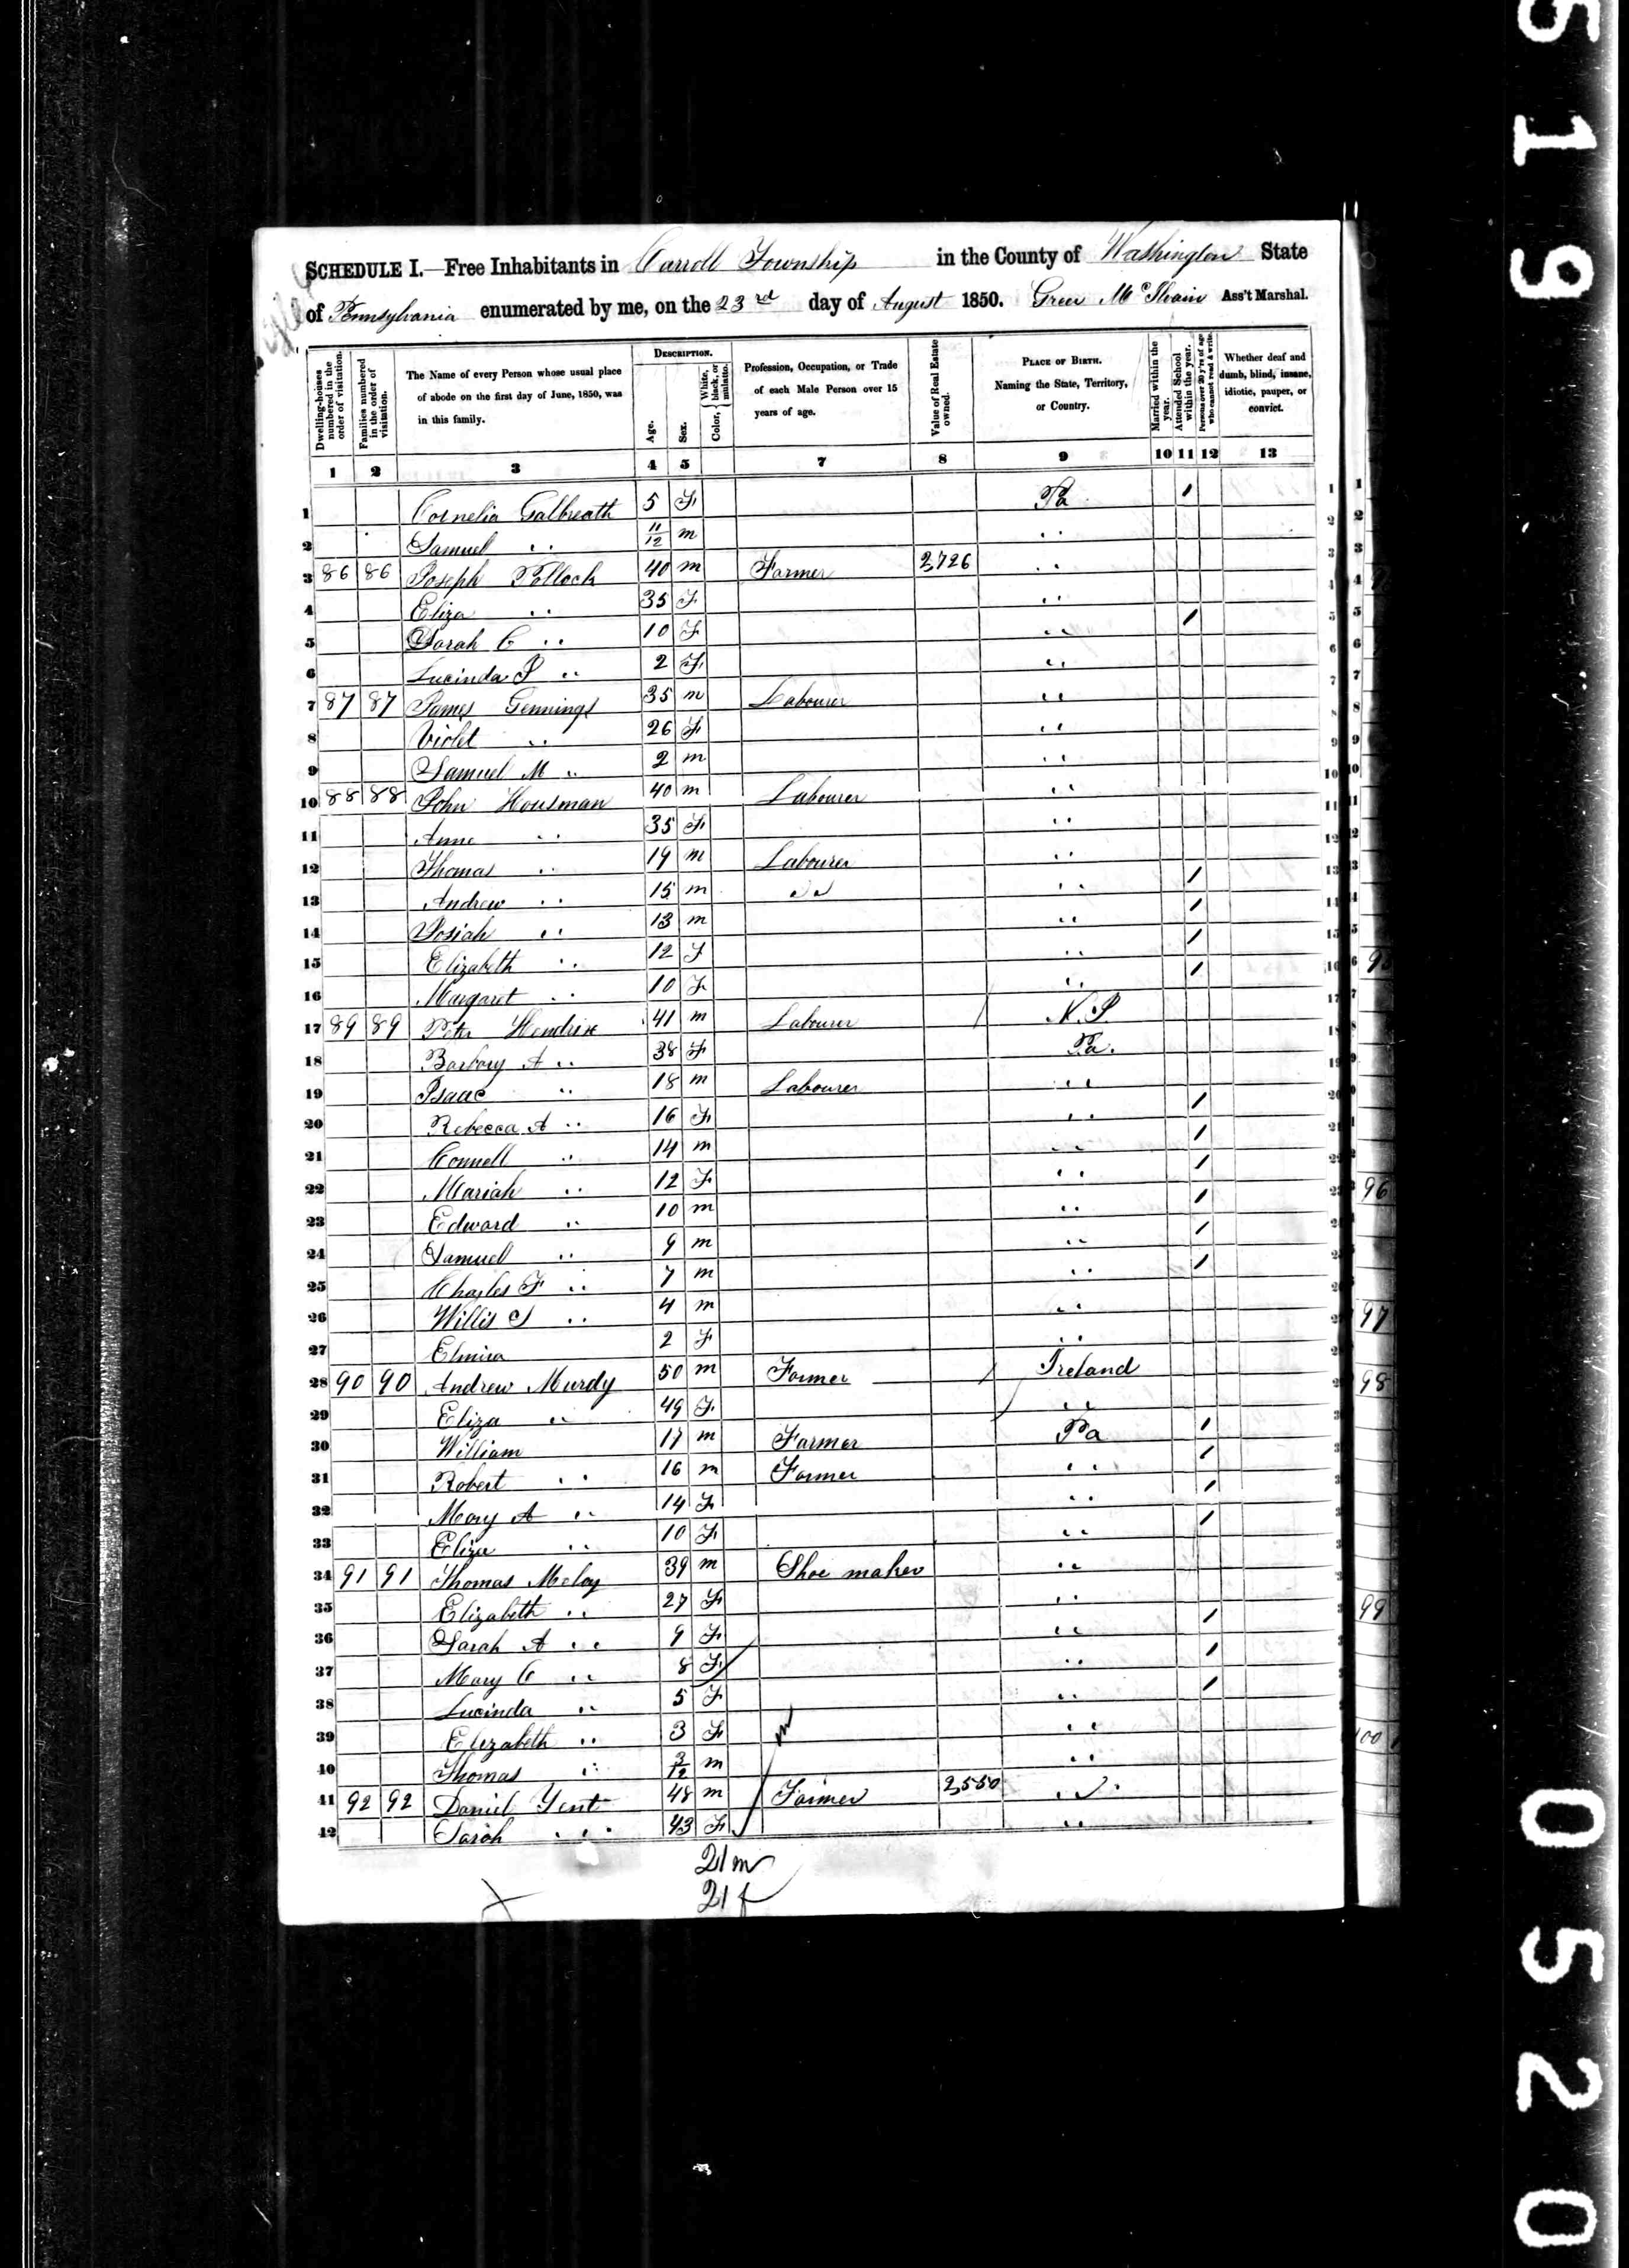 SCHEDULE I.—Free Inhabitants in Carroll Township in the County of Washington State
of Pennsylvania enumerated by me, on the 23rd day of August 1850. Greer McIlvain Ass't Marshal.
Dwelling-houses numbered in the order of visitation.
Families numbered in the order of visitation.
The Name of every Person whose usual place of abode on the first day of June, 1850, was in this family.
DESCRIPTION.
Age.
Sex.
Color, { White, black, or mulatto.
Profession, Occupation, or Trade of each Male Person over 15 years of age.
Value of Real Estate owned.
PLACE OF BIRTH. Naming the State, Territory, or Country.
Married within the year.
Attended School within the year.
Persons over 20 y'rs of age who cannot read & write.
Whether deaf and dumb, blind, insane, idiotic, pauper, or convict.
1 2 3 4 5 7 8 9 10 11 12 13
1 Cornelia Galbreath 5 F Pa / 1
2 Samuel " 11/12 m " 2
3 86 86 Joseph Pollock 40 m Farmer 2,726 " 3
4 Eliza " 35 F " 4
5 Sarah C " 10 F " / 5
6 Lucinda J " 2 F " 6
7 87 87 James Gennings 35 m Labourer " 7
8 Violet " 26 F " 8
9 Samuel M " 2 m " 9
10 88 88 John Housman 40 m Labourer " 10
11 Anne " 35 F " 11
12 Thomas " 19 m Labourer " 12
13 Andrew " 15 m " " / 13
14 Josiah " 13 m " / 14
15 Elizabeth " 12 F " / 15
16 Margaret " 10 F " / 16
17 89 89 Peter Hendrix 41 m Labourer / N. J. 17
18 Barbary A " 38 F Pa. 18
19 Isaac " 18 m Labourer " 19
20 Rebecca A " 16 F " / 20
21 Connell " 14 m " / 21
22 Mariah " 12 F " /
23 Edward " 10 m " / 96
24 Samuel " 9 m " /
25 Charles F " 7 m " /
26 Willis S " 4 m "
27 Elmira 2 F " 97
28 90 90 Andrew Murdy 50 m Farmer / Ireland
29 Eliza " 49 F / " 98
30 William 17 m Farmer Pa /
31 Robert " 16 m Farmer " /
32 Mary A " 14 F " /
33 Eliza " 10 F " /
34 91 91 Thomas Meloy 39 m Shoe maker "
35 Elizabeth " 27 F " 99
36 Sarah A " 9 F " /
37 Mary C " 8 F " /
38 Lucinda " 5 F " /
39 Elizabeth " 3 F " 100
40 Thomas " 3/12 m "
41 92 92 Daniel Yent 48 m Farmer 2,550 "
42 Sarah " 43 F "
21 m
21 f
5 1 9
0 5 2 0